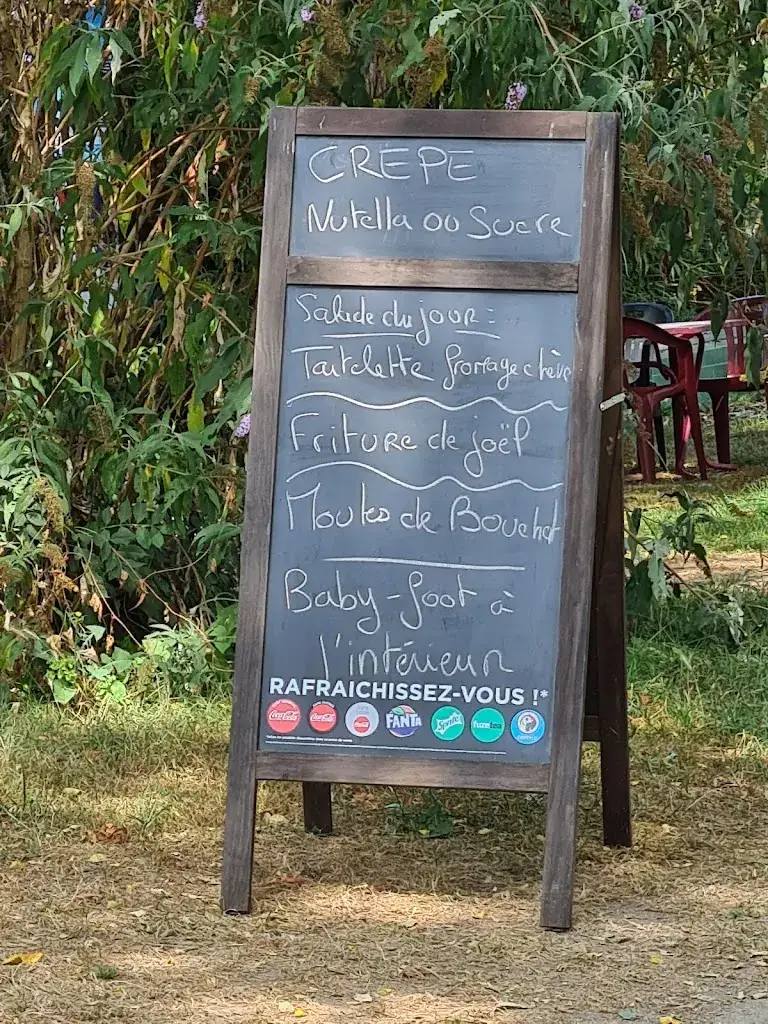 CREPE
Nutella ou Sucre
Salade du jour :
Tartelette fromage chèvre
Friture de joël
Moules de Bouchot
Baby-foot à
l'intérieur
RAFRAICHISSEZ-VOUS !*
Coca-Cola Coca-Cola Coca-Cola FANTA Sprite fuzetea